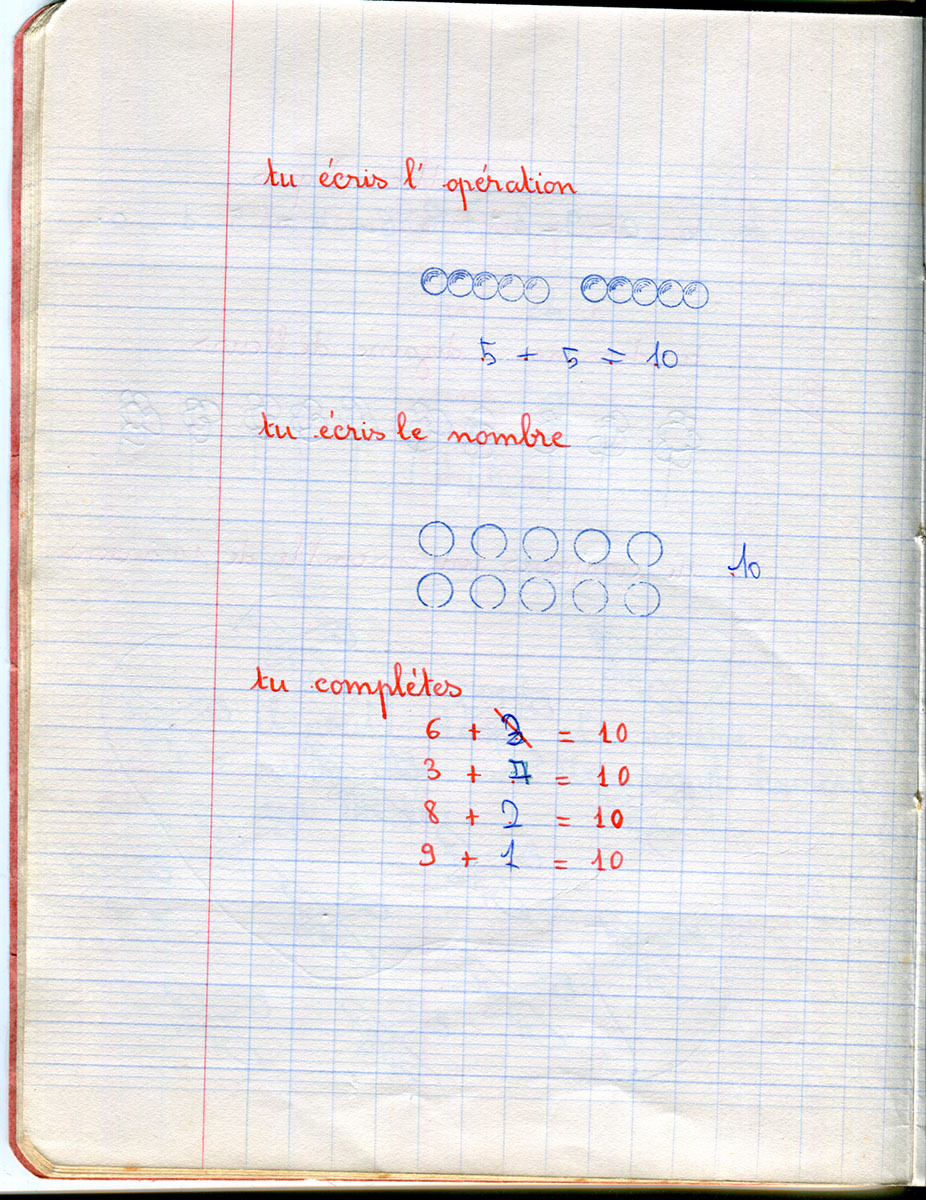 tu écris l'opération
5 + 5 = 10
tu écris le nombre
10
tu complètes
6 + 3 = 10
3 + 7 = 10
8 + 2 = 10
9 + 1 = 10